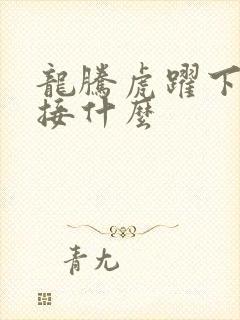 龍騰虎躍下
接什麼
青尢